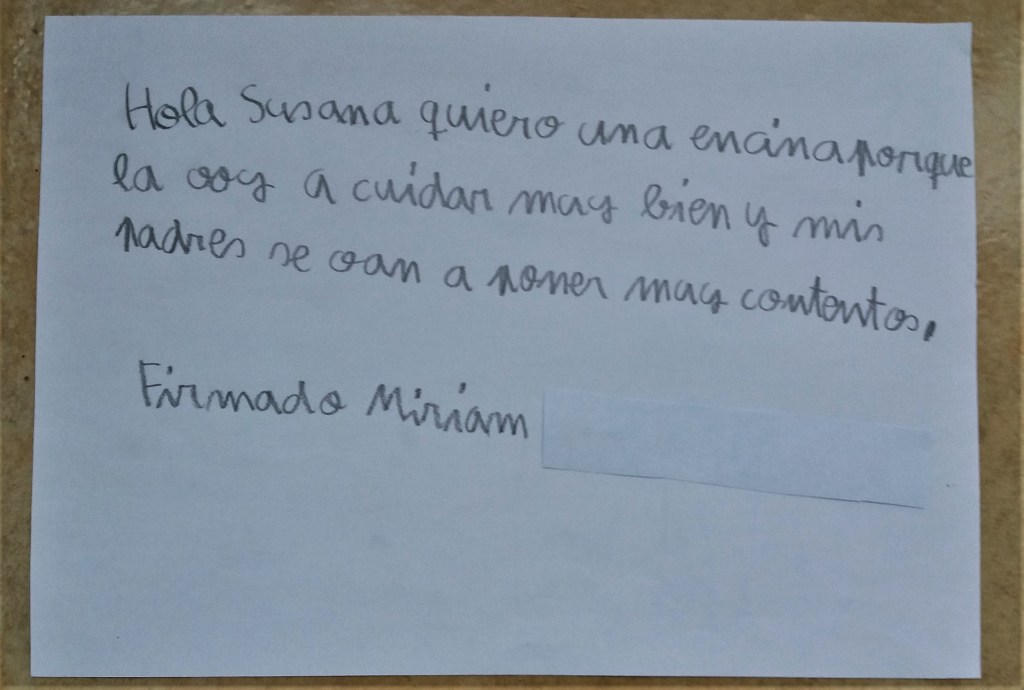 Hola Susana quiero una encina porque
la voy a cuidar muy bien y mis
padres se van a poner muy contentos.
Firmado Miriam